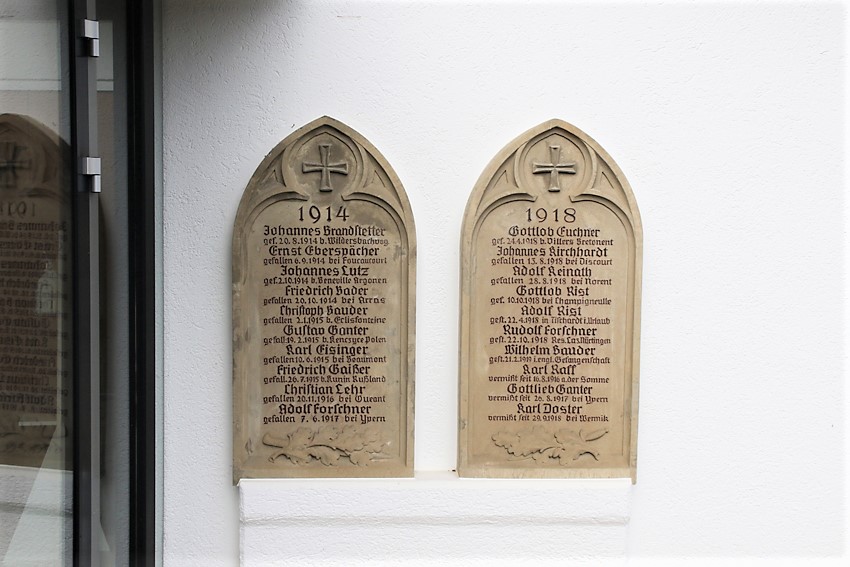 1914
Johannes Brandstetter
gef. 20.8.1914 b. Wildersbachvog.
Ernst Eberspächer
gefallen 6.9.1914 bei Foucaucourt
Johannes Lutz
gef. 2.10.1914 b. Beneville Argonen
Friedrich Bader
gefallen 20.10.1914 bei Arras
Christoph Bauder
gefallen 2.1.1915 b. Eclisfonteine
Gustav Ganter
gefall. 19.2.1915 b. Kencyce Polen
Karl Eisinger
gefallen 10.6.1915 bei Beaumont
Friedrich Gaißer
gefall. 26.7.1915 b. Rußland
Christian Lehr
gefallen 20.11.1916 bei Queant
Adolf Forschner
gefallen 7.6.1917 bei Ypern
1918
Gottlob Euchner
gef. 24.4.1918 b. Villers Bretonent
Johannes Kirchhardt
gefallen 13.8.1918 bei Discourt
Adolf Reinath
gefallen 28.8.1918 bei Norent
Gottlob Rist
gef. 10.10.1918 bei Champigneulle
Adolf Rist
gest. 22.4.1918 in Tischardt i. Urlaub
Rudolf Forschner
gest. 22.10.1918 Res. Laz. Nürtingen
Wilhelm Bauder
gest. 21.2.1919 i. engl. Gefangenschaft
Karl Raff
vermißt seit 16.8.1916 a. der Somme
Gottlieb Ganter
vermißt seit 26.8.1917 bei Ypern
Karl Doster
vermißt seit 29.9.1918 bei Wernik